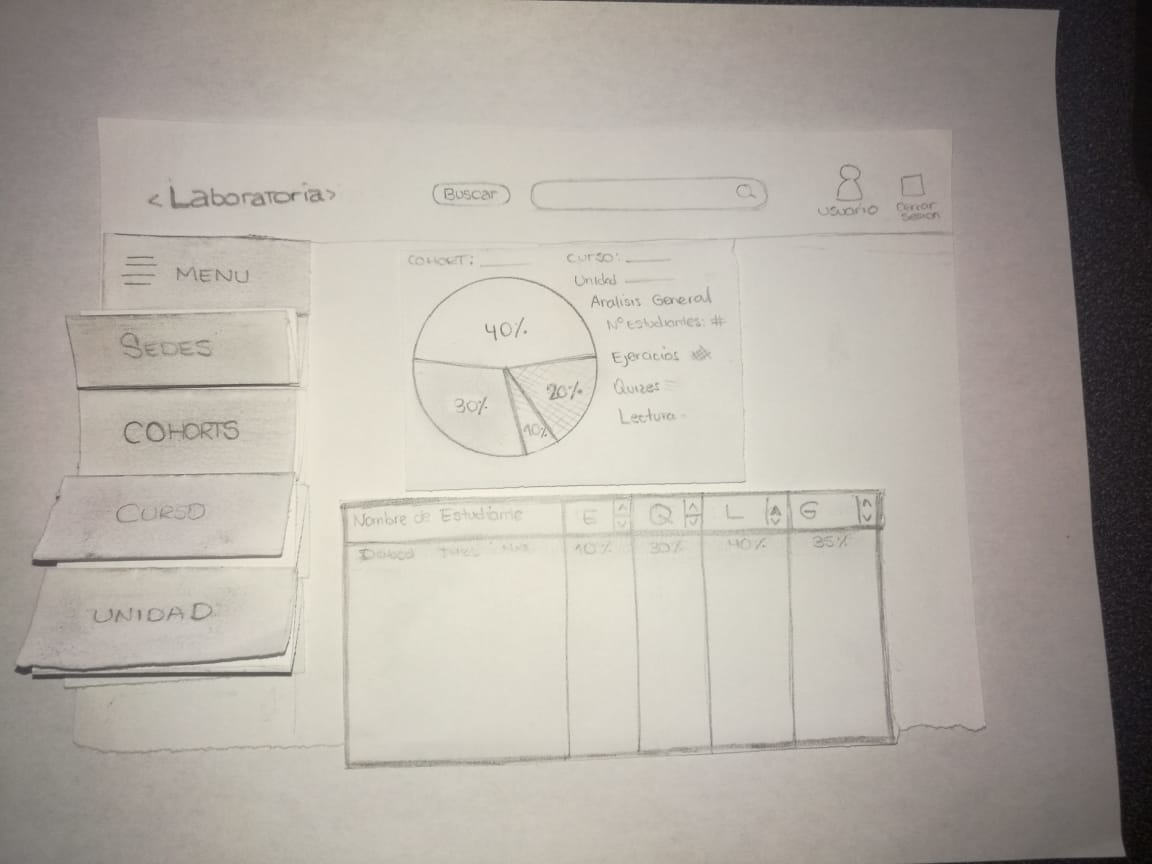 <Laboratoria>
Buscar
usuario
Cerrar
sesion
MENU
SEDES
COHORTS
CURSO
UNIDAD
COHORT: ____ Curso: ____
Unidad ____
Analisis General
N° Estudiantes: #
Ejercicios
Quizes
Lectura
40%
30%
20%
10%
Nombre de Estudiante E Q L G
10% 30% 40% 35%